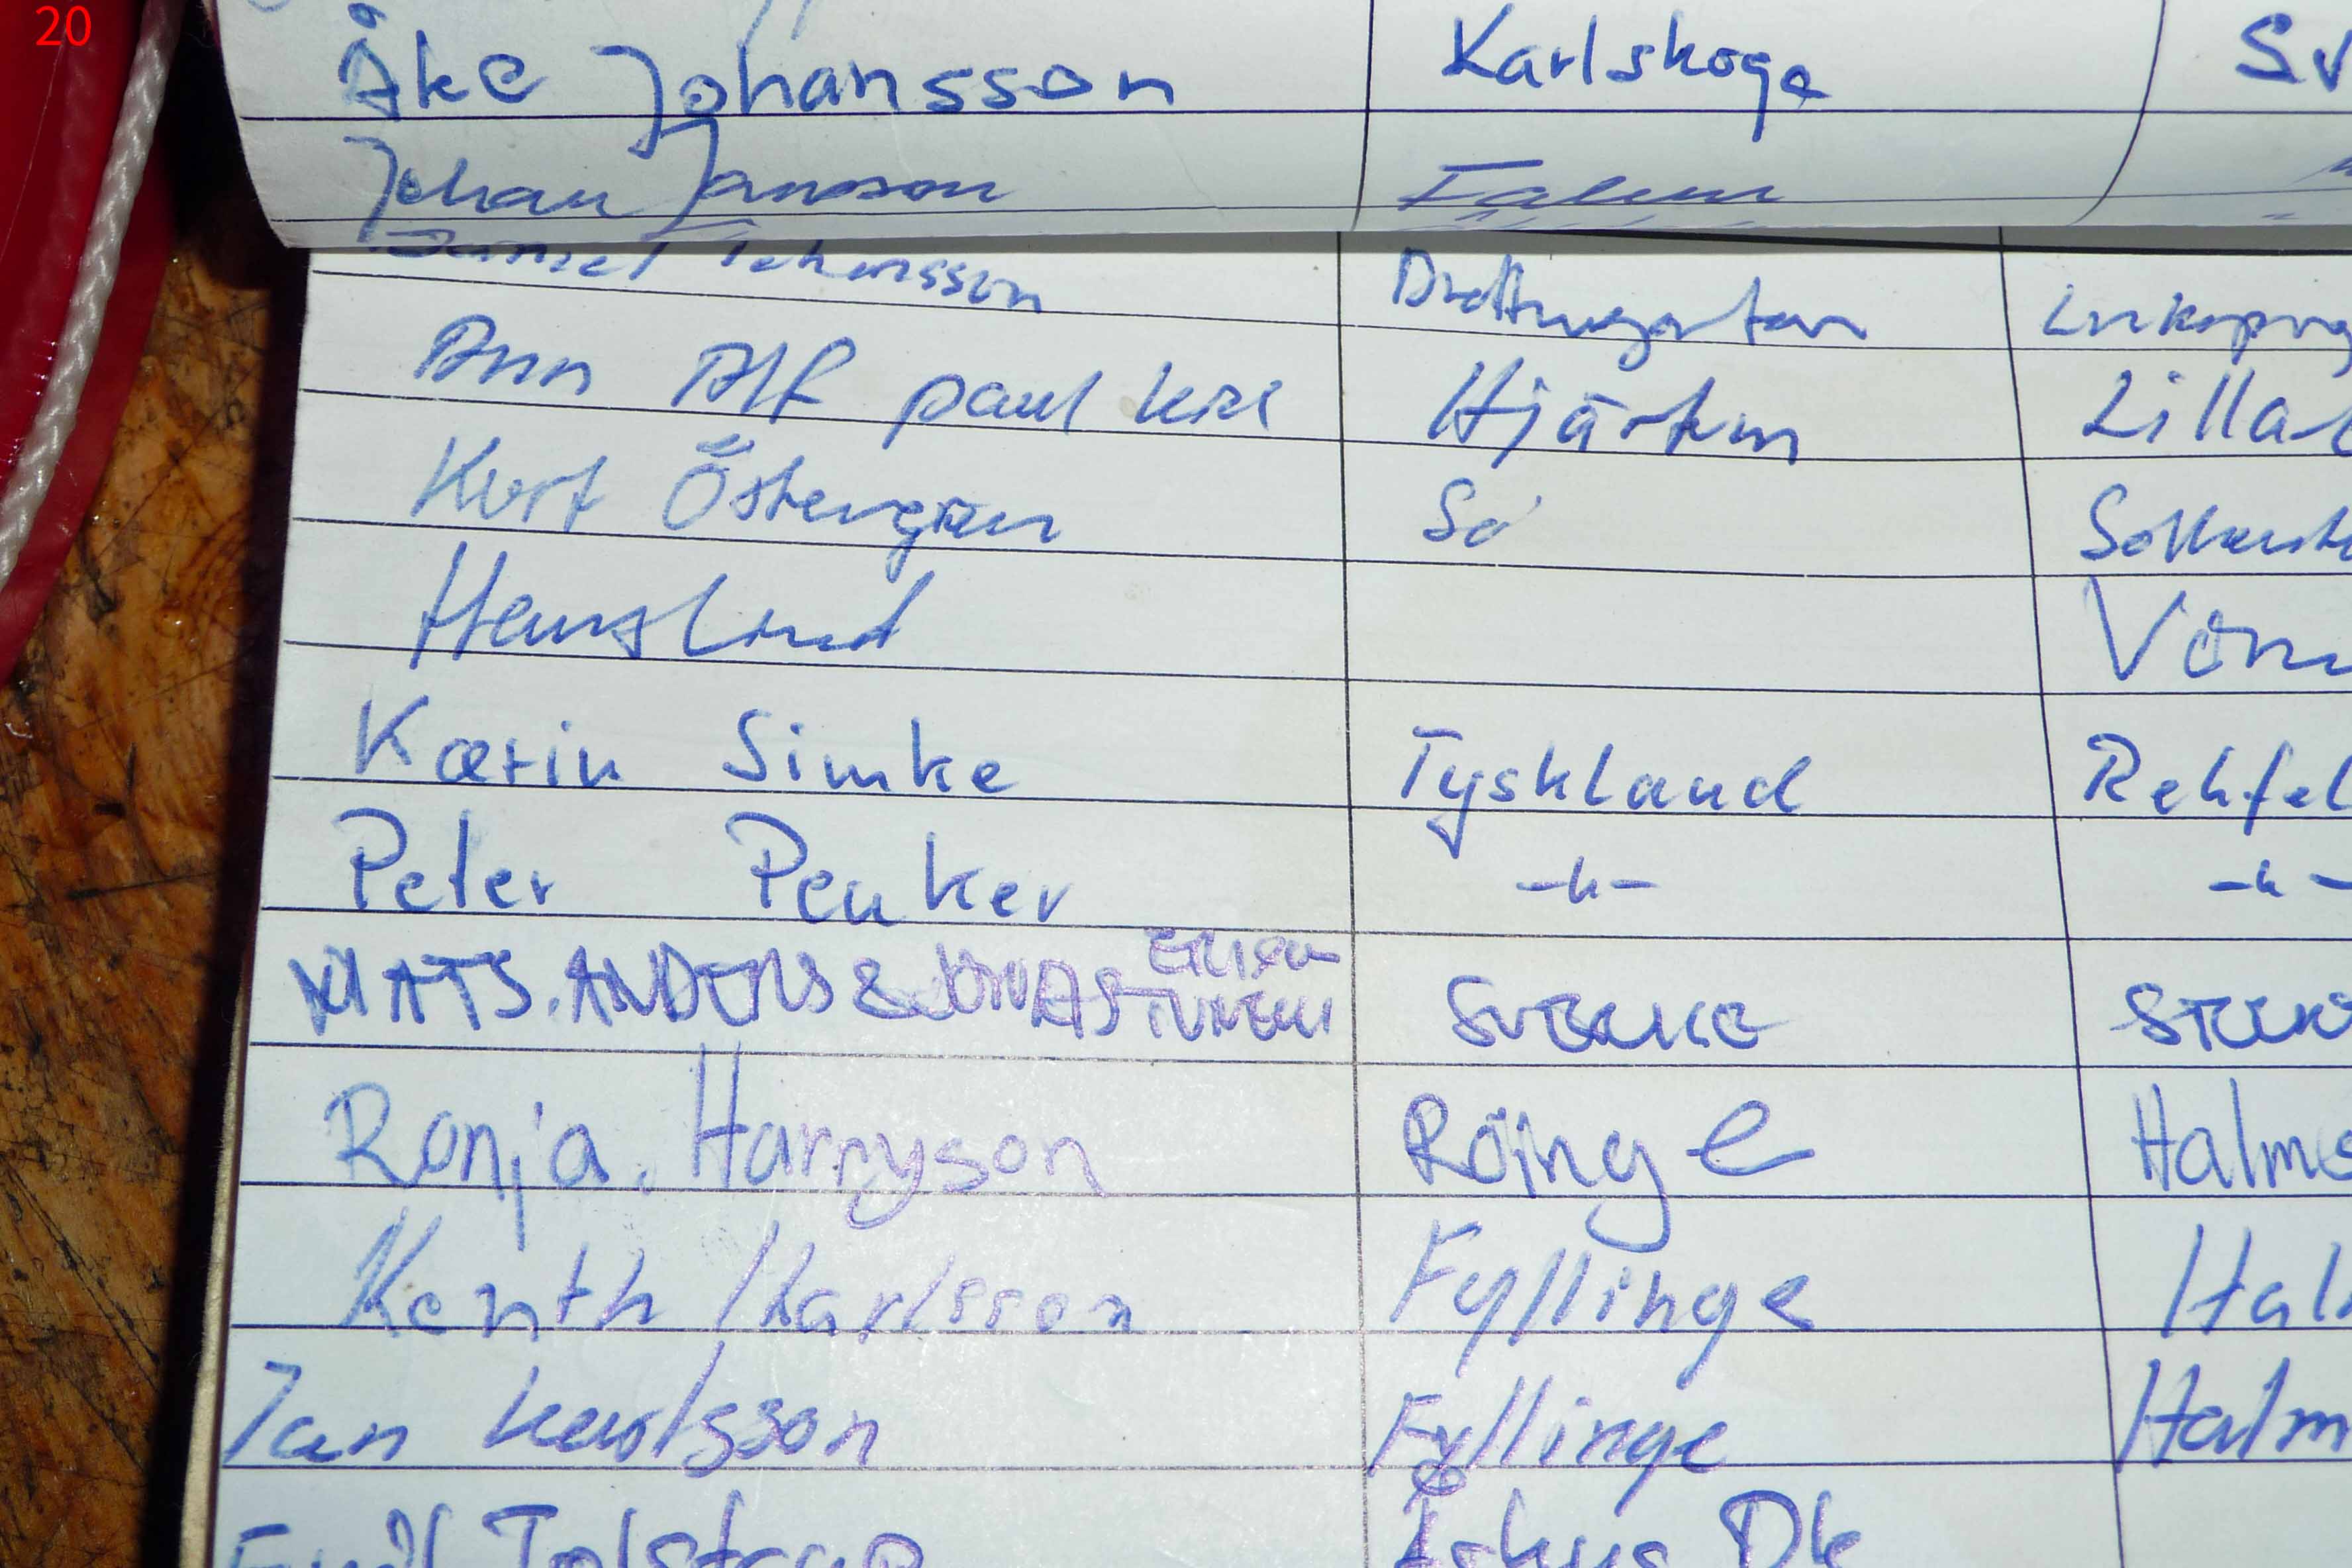 20
Åke Johansson Karlskoga Sv
Johan Jansson Falun
Daniel Johansson Drottninggatan Linköping
Ann Alf paul kici Hjärtum Lillae
Kurt Östergren So Sollent
Hans Lind Vörn
Karin Simke Tyskland Rehfel
Peter Peuker -"- -"-
MATS. ANDERS & JONAS ERIKSON SVERIGE
Ronja. Harryson Röinge Halms
Kenth Karlsson Fyllinge Hal
Jan Karlsson Fyllinge Halm
Emil Tolstrup Århus Dk